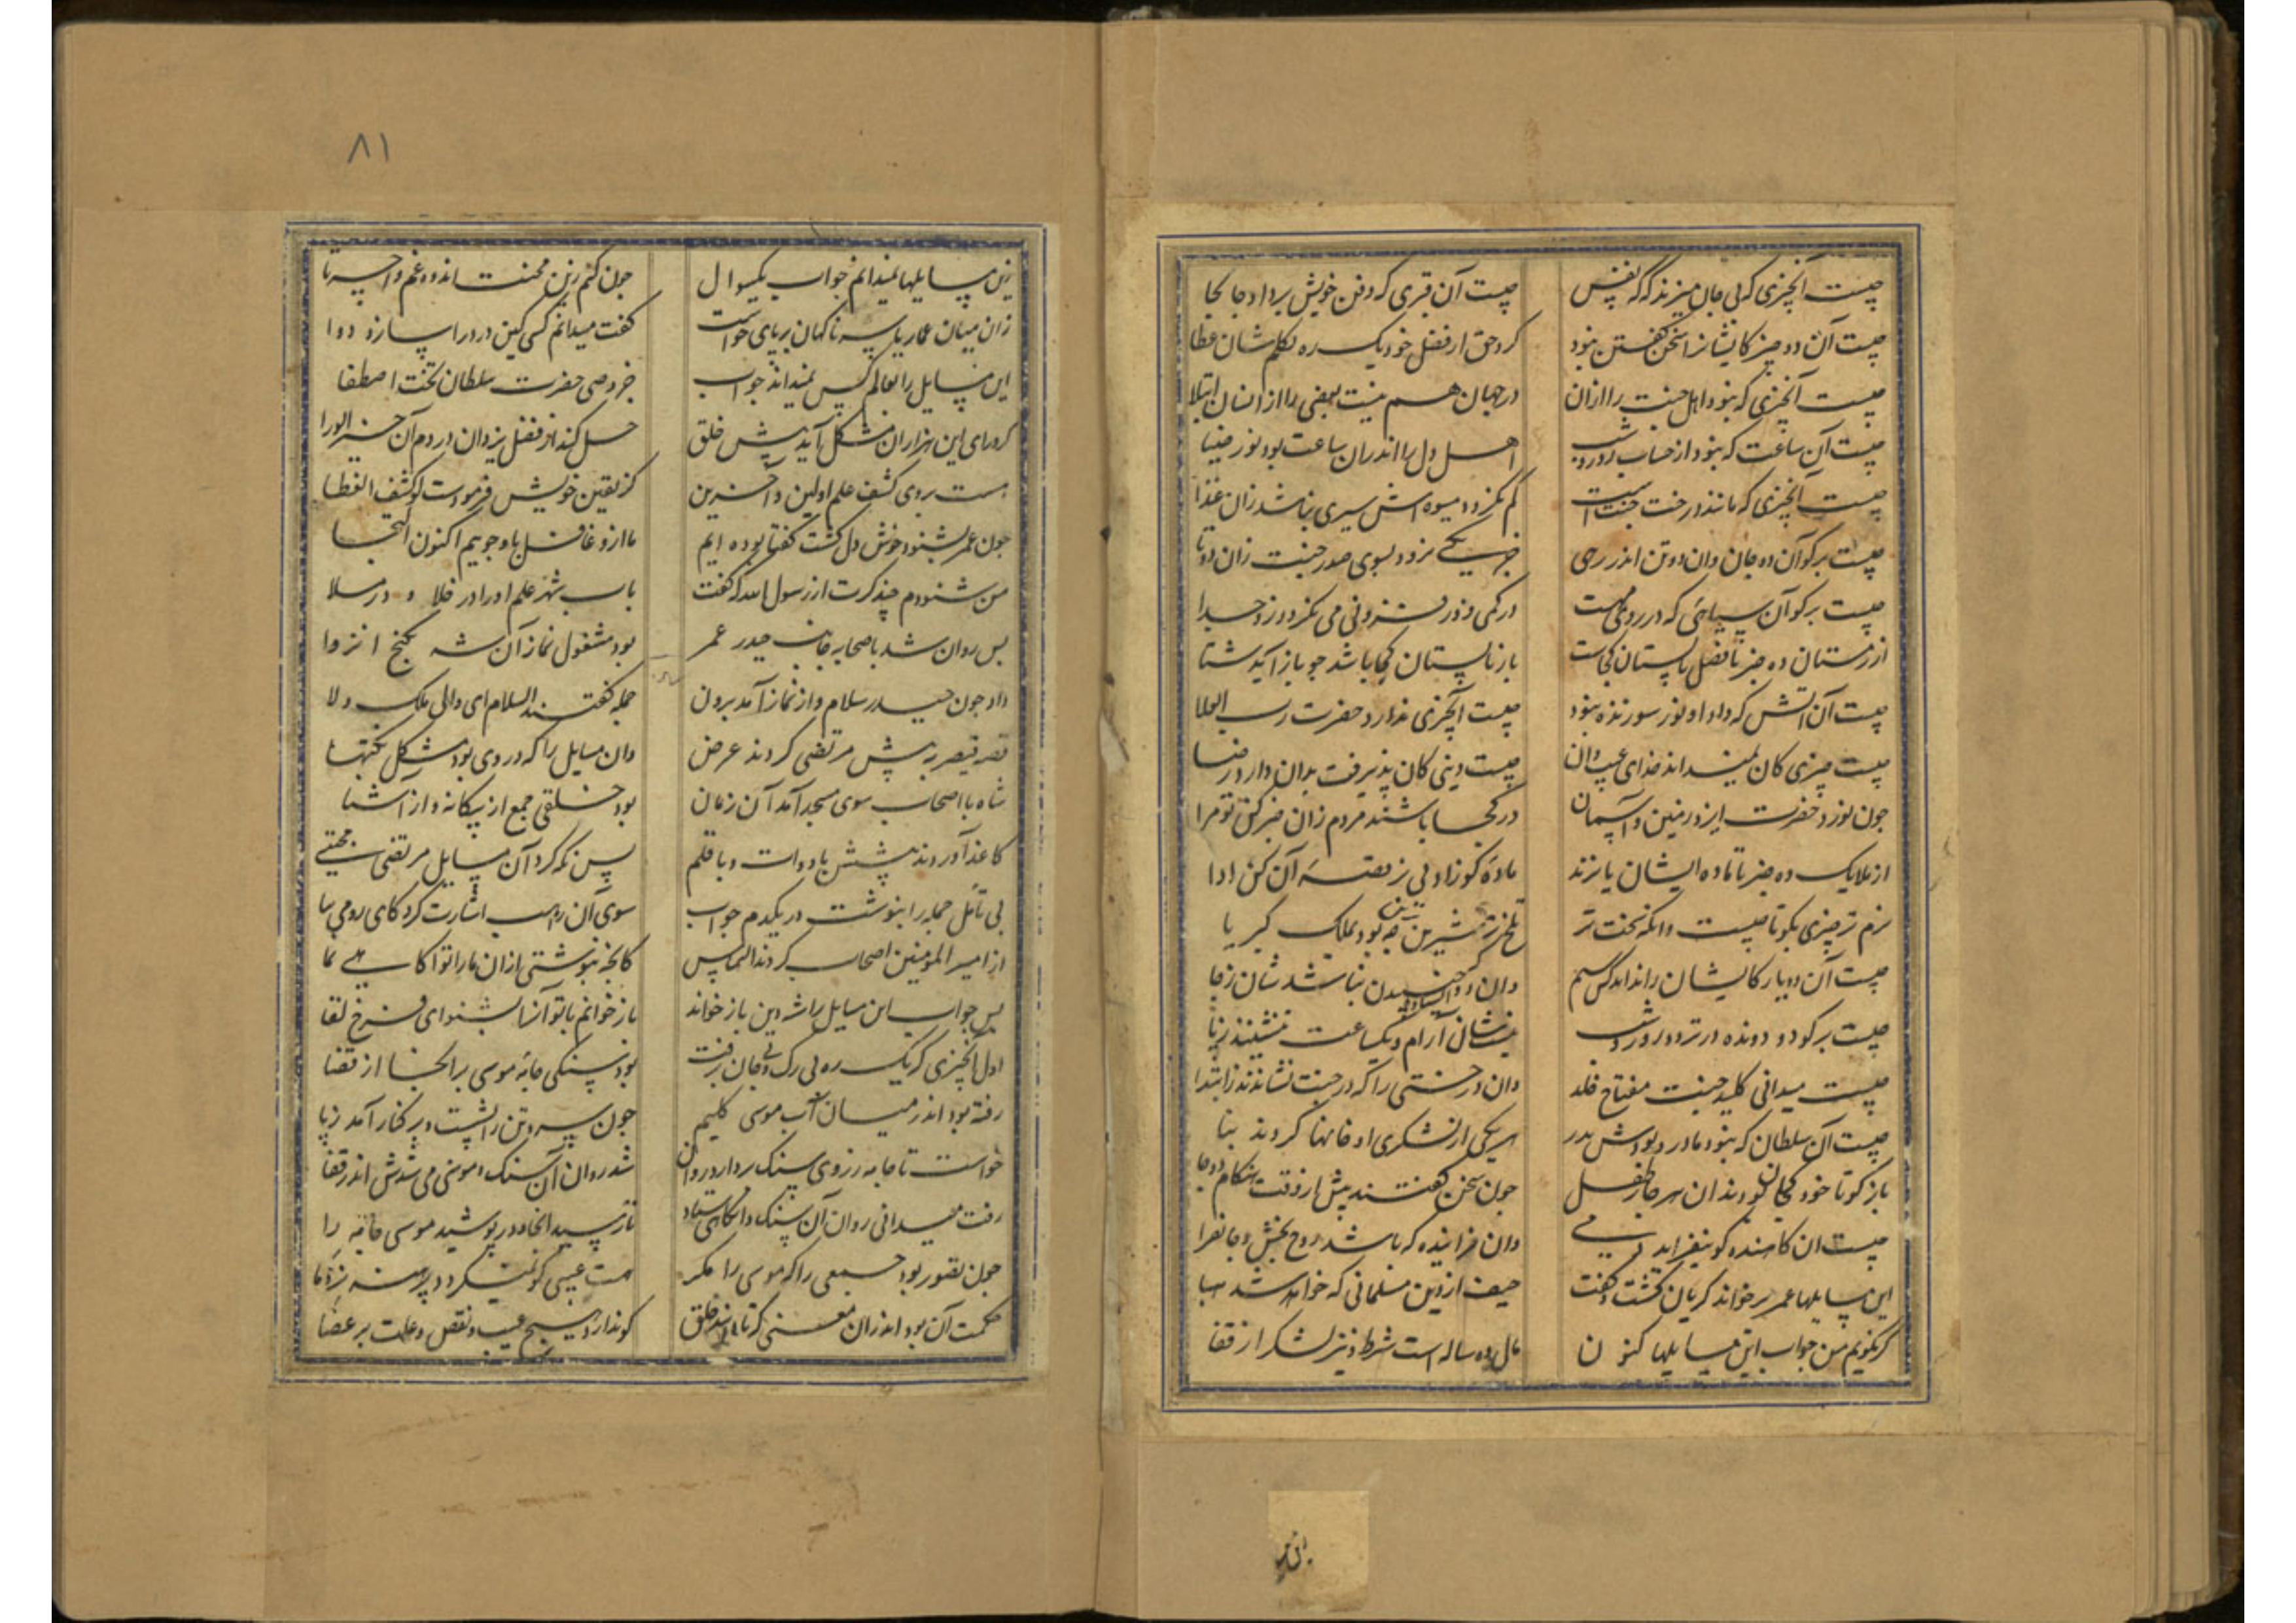 چیست آنچیزی که بی جان میزند که که نفس
چیست آن قبری که دفن خویش برد او جا بجا
چیست آن دو چیز کایشانرا سخن گفتن نبود
کرد حق از فضل خود یک ره تکلم شان عطا
چیست آنچیزی که بنود اهل جنت را ازان
در جهان هم نیست بعضی را از انسان ابتلا
چیست آن ساعت که بنود از حساب روز و شب
اهل دل را اندران ساعت بود نور ضیا
چیست آنچیزی که مانند درخت جنت است
کم نکردد میوه اش سیری نباشد زان غذا
چیست برکو آن ده جان وان دو تن اندر
جز یکی نرود بسوی صدر جنت زان دوتا
چیست برکو آن سیاهی که در روی مه است
در کمی و در فزونی می نکردد زو جدا
از زمستان ده خبر تا فصل تابستان کجاست
باز تابستان کجا باشد چو باز آید شتا
چیست آن آتش که داد او نور سوزنده نبود
چیست آنچیزی ندارد حضرت رب العلا
چیست چیزی کان نمیداند خدای غیب دان
چیست دینی کان پذیرفت بدان دارد رضا
چون نورد حضرت ایزد زمین و آسمان
در کجا باشند مردم زان خبر کن تو مرا
از ملایک ده خبر تا ماده ایشان یا نرند
ماده کو زاد بی نر قصه آن کن ادا
نرم تر چیزی بکو تا چیست وانکه سخت تر
تلخ تر شیرین چه بود بملک کبریا
چیست آن دو یار کایشان را نداند کس سیم
وان دو جنبیدن نباشد شان ز جا
چیست برکو دو دونده در تردد روز و شب
نیست شان آرام و یکساعت ننشینند ز پا
چیست میدانی کلید جنت مفتاح خلد
وان درختی را که در جنت نشاندند ز ابتدا
چیست آن سلطان که بنود مادر و بودش پدر
هر یکی از لشکری او خانها کردند بنا
باز کو تا خود کیان بودند ان هر چار طفل
چون سخن گفتند پیش از وقت هنکام
چیست ان کاهنده کو نیفزاید دمی
وان فزاینده که باشد روح بخش و جانفزا
این مسایلها عمر بر خواند کریان کشت و گفت
حیف ازین مسلمانی که خواهد شد هبا
گر نگویم من جواب این مسایلها کنون
مال ده ساله است شرط و نیز لشکر از قفا
۸۱
زین مسایلها نمیدانم جواب یکسوال
چون کنم زین محنت اندوه غم واحسرتا
زان میان عمار یاسر ناکهان بر پای خواست
گفت میدانم کسی کین درد را سازد دوا
این مسایل را بعالم کس نمیداند جواب
جز وصی حضرت سلطان تخت اصطفا
کر ورای این هزاران مشکل آید پیش خلق
حل کند از فضل یزدان در دم آن خیر الورا
هست بروی کشف علم اولین و آخرین
کز یقین خویش فرمودست لو کشف الغطا
چون عمر بشنود خوش دل کشت گفتا بوده ایم
ما ازو غافل باو جوییم اکنون التجا
من شنودم چند کرت از رسول الله که گفت
باب شهر علم او را در خلا و در ملا
پس روان شد با صحابه جانب حیدر عمر
بود مشغول نماز آن شه بکنج انزوا
داد چون حیدر سلام و از نماز آمد برون
جمله گفتند السلام ای والی ملک ولا
قصه قیصر به پیش مرتضی کردند عرض
وان مسایل را که در وی بود مشکل نکتها
شاه با اصحاب سوی مسجد آمد آن زمان
بود خلقی جمع از بیکانه و از آشنا
کاغذ آوردند پیشش با دوات و با قلم
پس نکه کرد آن مسایل مرتضی مجتبی
بی تأمل جمله را بنوشت در یکدم جواب
سوی آن راهب اشارت کرد کای رومی بیا
از امیر المومنین اصحاب کردند التماس
کانچه بنوشتی ازان ما را تو آکاهی نما
پس جواب این مسایل را شه دین باز خواند
باز خوانم با تو آنها بشنو ای فرخ لقا
اول آنچیزی کز یک ره بی رک و بی جان برفت
بود سنکی جامه موسی بر آنجا از قضا
رفته بود اندر میان آب موسی کلیم
چون سر و تن را بشست و بر کنار آمد ز پا
خواست تا جامه ز روی سنک بردارد روان
شد روان آن سنک و موسی می شدش اندر قفا
رفت میدانی روان آن سنک و آنکاهی ستاد
تا رسید انجا و در پوشید موسی جامه را
چون تصور بود جمعی را که موسی را مکر
هست عیبی کو نمیکردد برهنه نزد ما
حکمت آن بود اندران معنی که تا بینند خلق
کو ندارد هیچ عیب و نقص و علت بر عضا